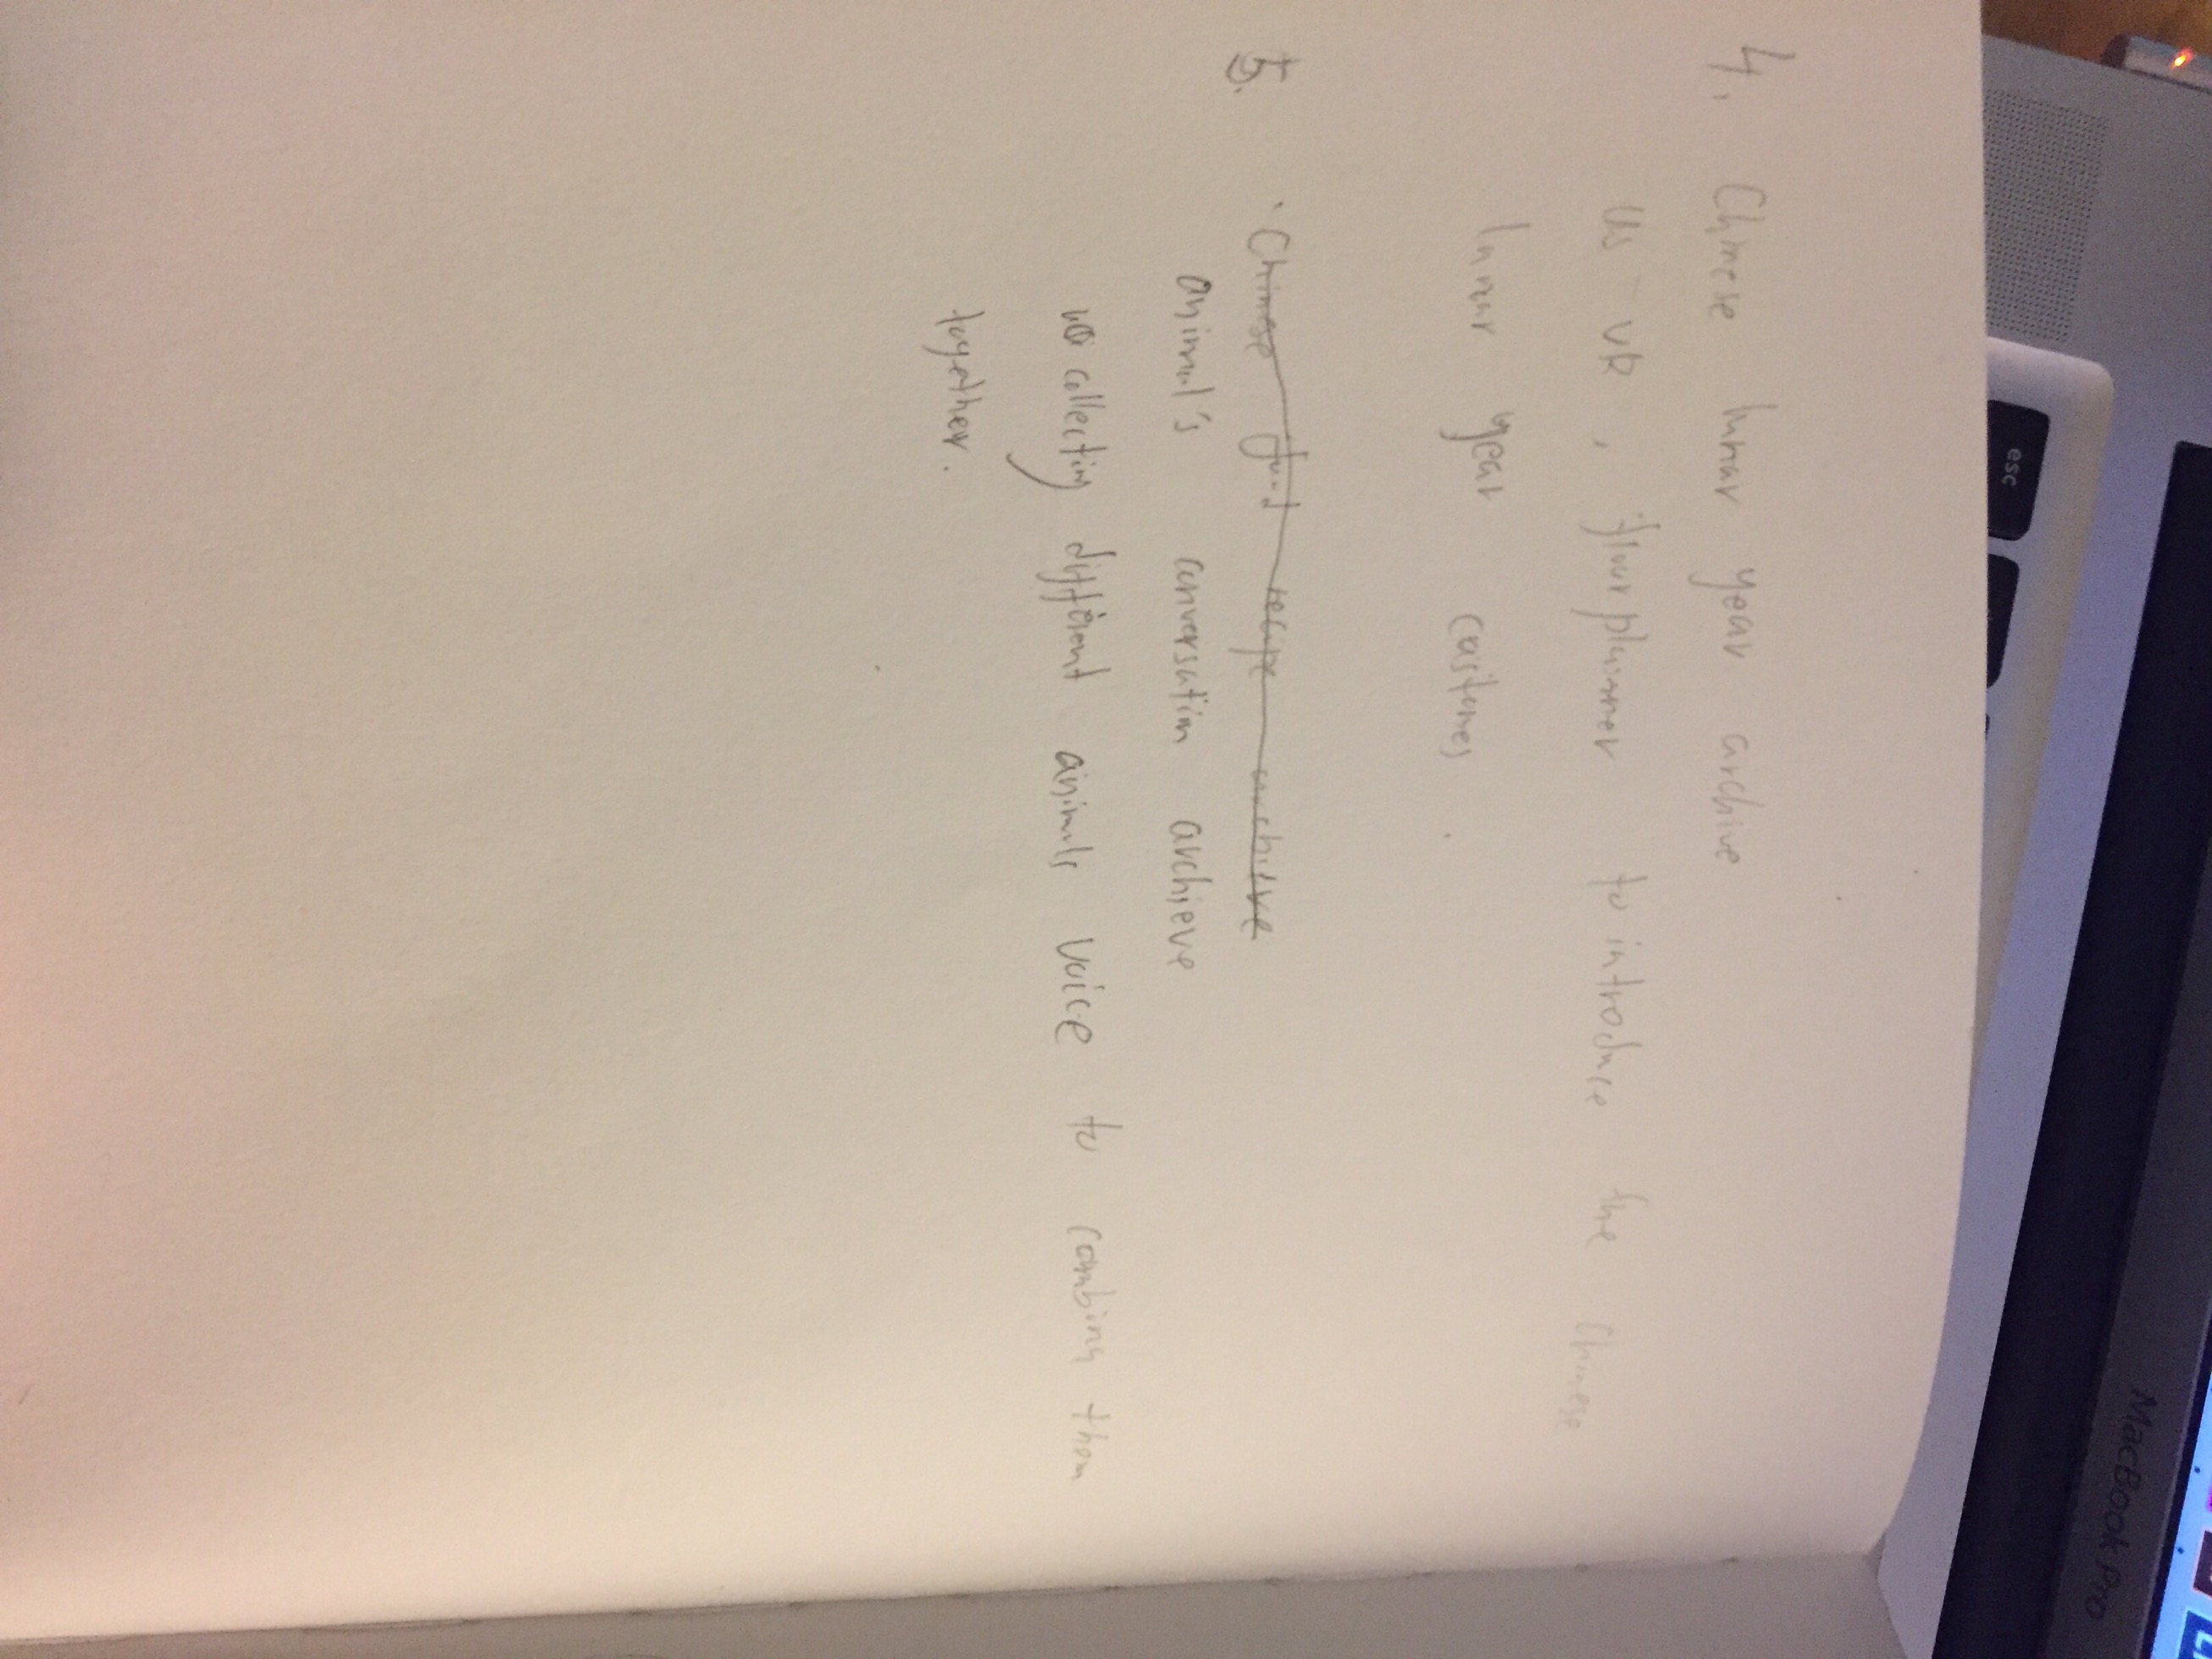 4. Chinese lunar year archive
us - vk, flourplanner to introduce the Chinese
lunar year costomes.
5. · Chinese food recipe archive
animal's conversation archieve
collecting different animals voice to combing them
together.
esc
MacBook Pro